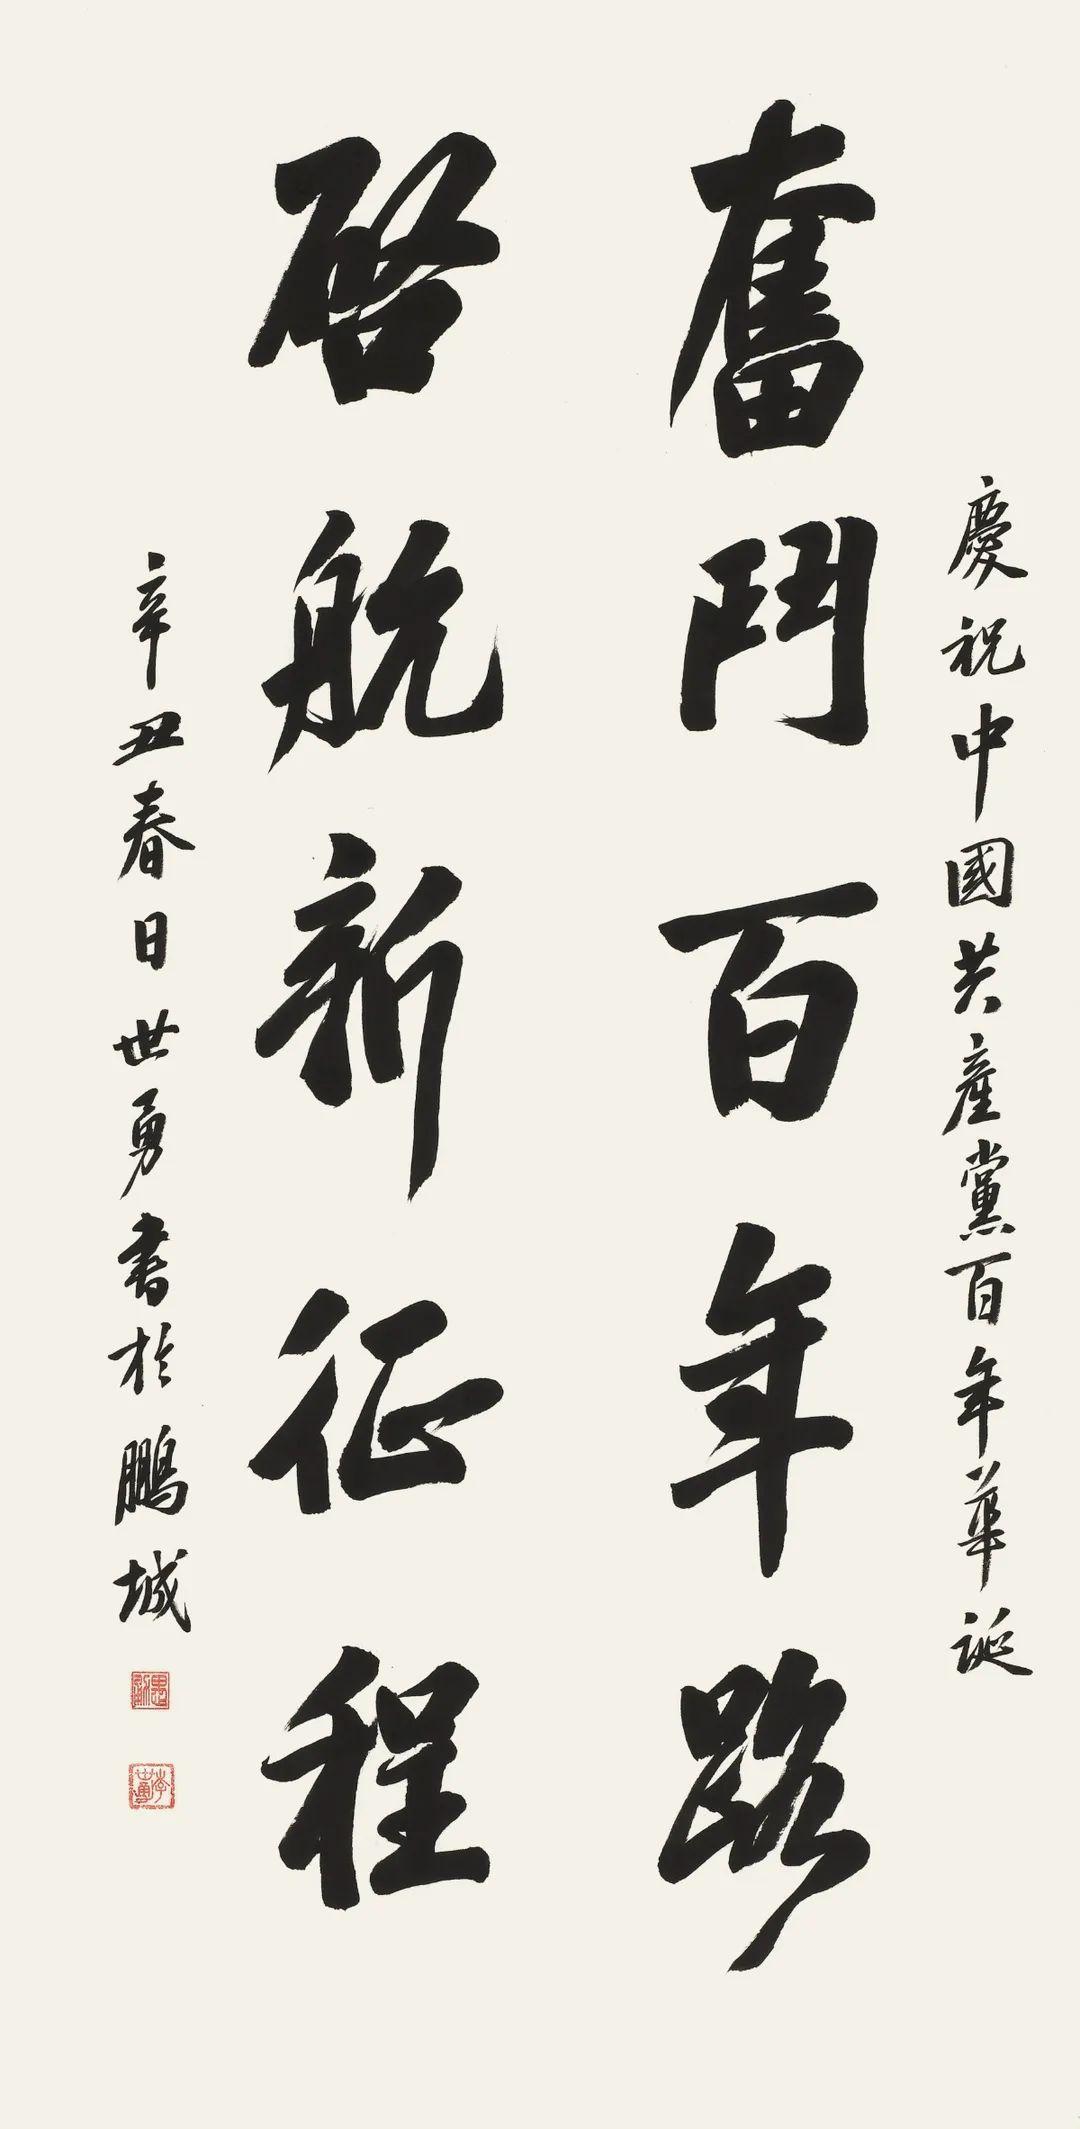 慶祝中國共產黨百年華誕
奮鬥百年路
啟航新征程
辛丑春日世勇書於鵬城